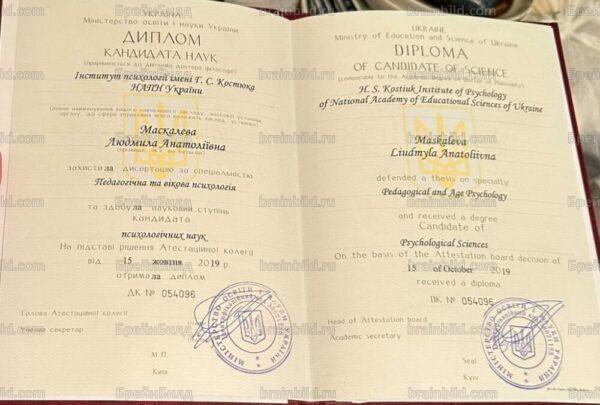 УКРАЇНА
Міністерство освіти і науки України
ДИПЛОМ
КАНДИДАТА НАУК
(прирівнюється до диплома доктора філософії)
Інститут психології імені Г. С. Костюка
НАПН України
Маскалева
Людмила Анатоліївна
(прізвище, ім'я, по батькові)
захистила дисертацію за спеціальністю
Педагогічна та вікова психологія
та здобула науковий ступінь
кандидата
психологічних наук
На підставі рішення Атестаційної колегії
від 15 жовтня 2019 р.
отримала диплом
ДК № 054096
Голова Атестаційної колегії
Учений секретар
М.П.
Київ
UKRAINE
Ministry of Education and Science of Ukraine
DIPLOMA
OF CANDIDATE OF SCIENCE
(comparable to the Academic Degree of Doctor of Philosophy)
H. S. Kostiuk Institute of Psychology
of National Academy of Educational Sciences of Ukraine
Maskaleva
Liudmyla Anatoliivna
defended a thesis on specialty
Pedagogical and Age Psychology
and received a degree
Candidate of
Psychological Sciences
On the basis of the Attestation board decision of
15 of October 2019
received a diploma
DK № 054096
Head of Attestation board
Academic secretary
Seal
Kyiv
МІНІСТЕРСТВО ОСВІТИ І НАУКИ УКРАЇНИ
МІНІСТЕРСТВО ОСВІТИ І НАУКИ УКРАЇНИ
brainbild.com
БрейнБилд
brainbild.ru